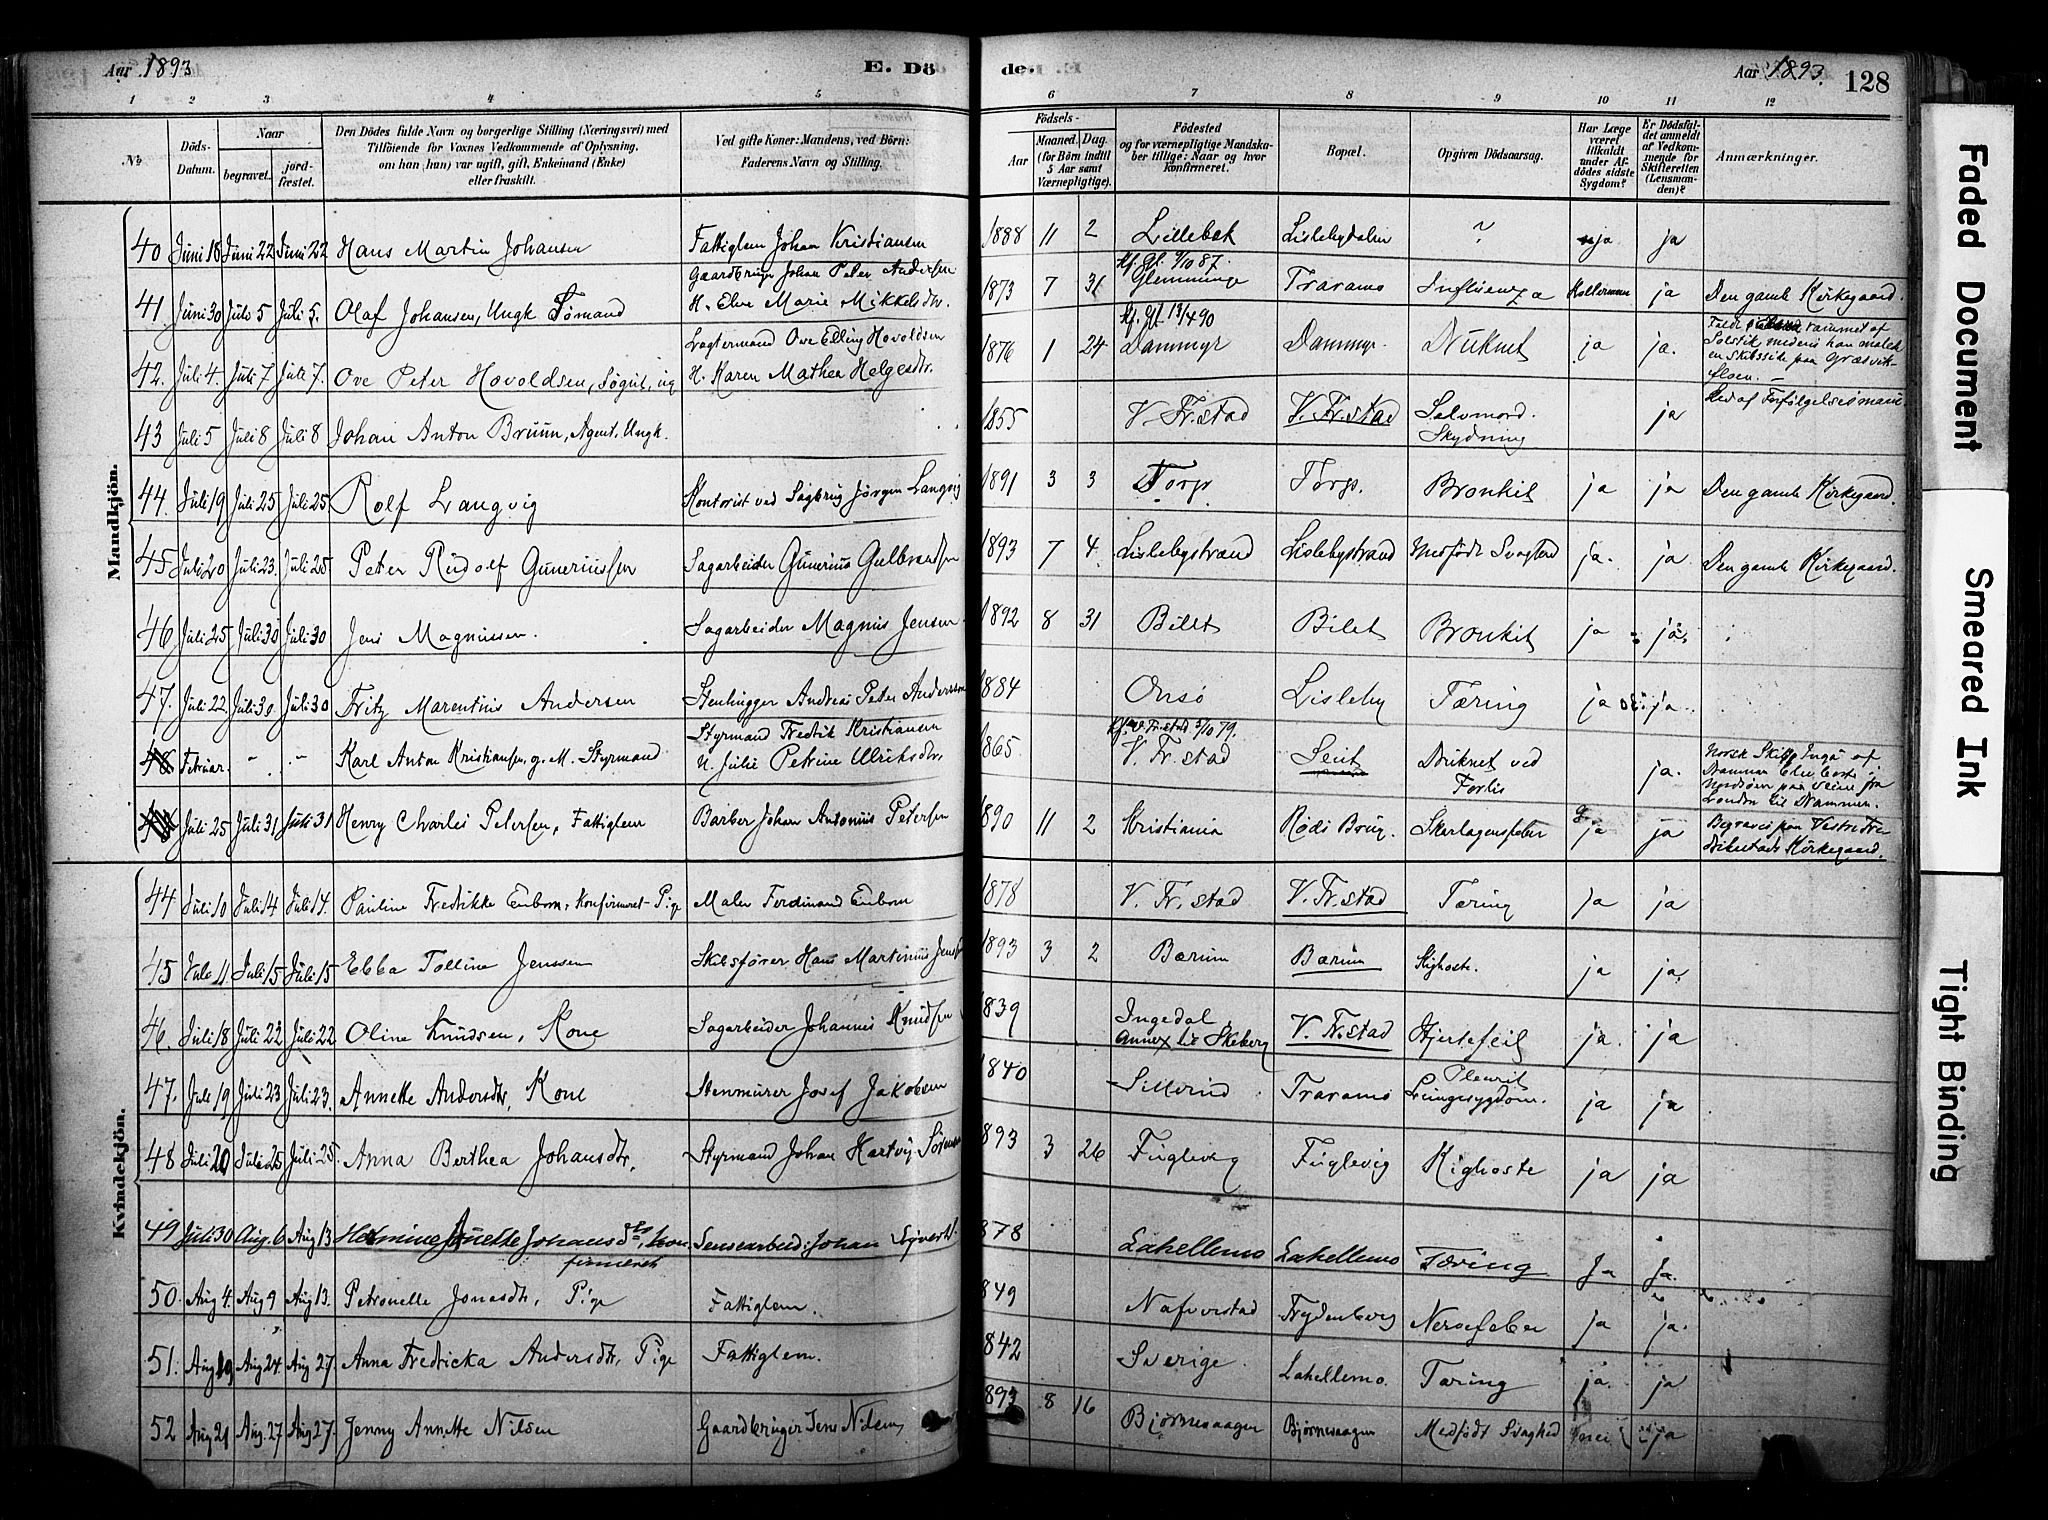 Aar 1893
E. Dö
de.
Aar 1893.
128
1 2 3 4 5 6 7 8 9 10 11 12
No
Döds-Datum.
Naar
begravet.
jord-fæstet.
Den Dödes fulde Navn og borgerlige Stilling (Næringsvei) med
Tilföiende for Voxnes Vedkommende af Oplysning,
om han (hun) var ugift, gift, Enkemand (Enke)
eller fraskilt.
Ved gifte Koner: Mandens, ved Börn:
Faderens Navn og Stilling.
Födsels-
Aar
Maaned.
Dag.
(for Börn indtil
5 Aar samt
Værnepligtige).
Födested
og for værnepligtige Mandska-
ber tillige: Naar og hvor
konfirmeret.
Bopæl.
Opgiven Dödsaarsag.
Har Læge
været
tilkaldt
under Af-
dödes sidste
Sygdom?
Er Dödsfal-
det anmeldt
af Vedkom-
mende for
Skifteretten
(Lensman-
den)?
Anmærkninger.
Mandkjön.
40 Juni 18 Juni 22 Juni 22 Hans Martin Johansen Fattiglem Johan Kristiansen 1888 11 2 Lillebæk Lislebydalen ? ja ja
Gaardbruger Johan Peter Andersen Kf. Gl. 9/10 87.
41 Juni 30 Juli 5 Juli 5. Olaf Johansen, Ungk Sømand H. Elve Marie Mikkelsdtr. 1873 7 31 Glemminge Traramo Influenza ja Den gamle Kirkegaard.
Lagtermand Ove Elling Hovoldsen Kf. Gl. 13/4 90
42. Juli 4. Juli 7 Juli 7. Ove Peter Hovoldsen, Søgut, ug H. Karen Mathea Helgesdtr. 1876 1 24 Dammyr Dammyr. Druknet ja ja. Faldt rammet af
Solstik medens han malede
en Skibsside paa Græsvik-
floen. —
43 Juli 5 Juli 8 Juli 8 Johan Anton Bruun, Agent, Ungk. 1855 V. Fr.stad V. Fr.stad Selvmord. Skydning ja Led af Forfølgelsesmani
44. Juli 19 Juli 25 Juli 25 Rolf Langvig Kontorist ved Sagbrug Jørgen Langvig 1891 3 3 Torp Torp. Bronkit ja ja Den gamle Kirkegaard.
45. Juli 20 Juli 23. Juli 25 Peter Rudolf Gunerius​sen Sagarbeider Gunerius Gulbrandsen 1893 7 4. Lislebystrand Lislebystrand Medfødt Svaghed ja. ja Den gamle Kirkegaard.
46 Juli 25 Juli 30 Juli 30 Jens Magnussen. Sagarbeider Magnus Jensen 1892 8 31 Bilet Bilet Bronkit ja ja
47. Juli 22. Juli 30. Juli 30 Fritz Marentius Andersen Stenhugger Andreas Peter Anderssen 1884 Onsø Lisleby Tæring ja ja.
Styrmand Fredrik Kristiansen Kf. V. Fr.stad 5/10 79.
48. Februar. " " Karl Anton Kristiansen, g. M. Styrmand H. Julie Petrine Ulriksdtr. 1865. V. Fr. stad Leie Druknet ved Forlis ja. Norsk Skib Inga af
Drammen
Nordsøen paa Reise fra
London til Drammen.
Juli 25 Juli 31 Juli 31 Henry Charles Petersen, Fattiglem Barber Johan Antonius Petersen 1890 11 2 Kristiania Røds Brug. Skarlagensfeber ja ja Begraves paa Vestre Fre-
drikstads Kirkegaard.
Kvindekjön.
44 Juli 10 Juli 14 Juli 14. Pauline Fredrikke Enbom, Konfirmeret Pige Maler Ferdinand Enbom 1878 V. Fr. stad V. Fr. stad Tæring ja ja
45 Juli 11. Juli 15 Juli 15 Ebba Tolline Jenssen Skibsfører Hans Martinius Jenssen 1893 3 2 Bærum Bærum Kighoste. ja ja
46. Juli 18 Juli 22 Juli 22 Oline Knudsen, Kone Sagarbeider Johannes Knudsen 1839 Ingedal Annex til Skeberg V. Fr.stad Hjertefeil ja. ja
47. Juli 19 Juli 23 Juli 23. Annette Andersdtr, Kone Stenmurer Josef Jakobsen 1840 Traramo Pleurit Lungesygdom. ja ja
48 Juli 20 Juli 25 Juli 25. Anna Berthea Johansdtr, Styrmand Johan Hartvig Sørensen 1893 3 26 Fuglevig Fuglevig Kighoste ja ja
49 Juli 30 Aug. 6 Aug 13 Hermine Annette Johansdtr, konfirmeret Johan Sÿverts. 1878 Lahellemo Lahellemo Tæring Ja Ja.
50. Aug 4. Aug 9 Aug 13. Petronelle Jonasdtr, Pige Fattiglem. 1849 Nafverstad Frydenberg Nervefeber ja ja.
51. Aug 19 Aug 24. Aug 27 Anna Fredricka Andersdtr, Pige Fattiglem. 1842 Sverige. Lahellemo. Tæring ja. ja
52 Aug 21 Aug. 27 Aug 27. Jenny Annette Nilsen Gaardbruger Jens Nilsen 1893 8 16 Bjørnevaagen Bjørnevaagen Medfødt Svaghed nei ja
Faded Document
Smeared Ink
Tight Binding